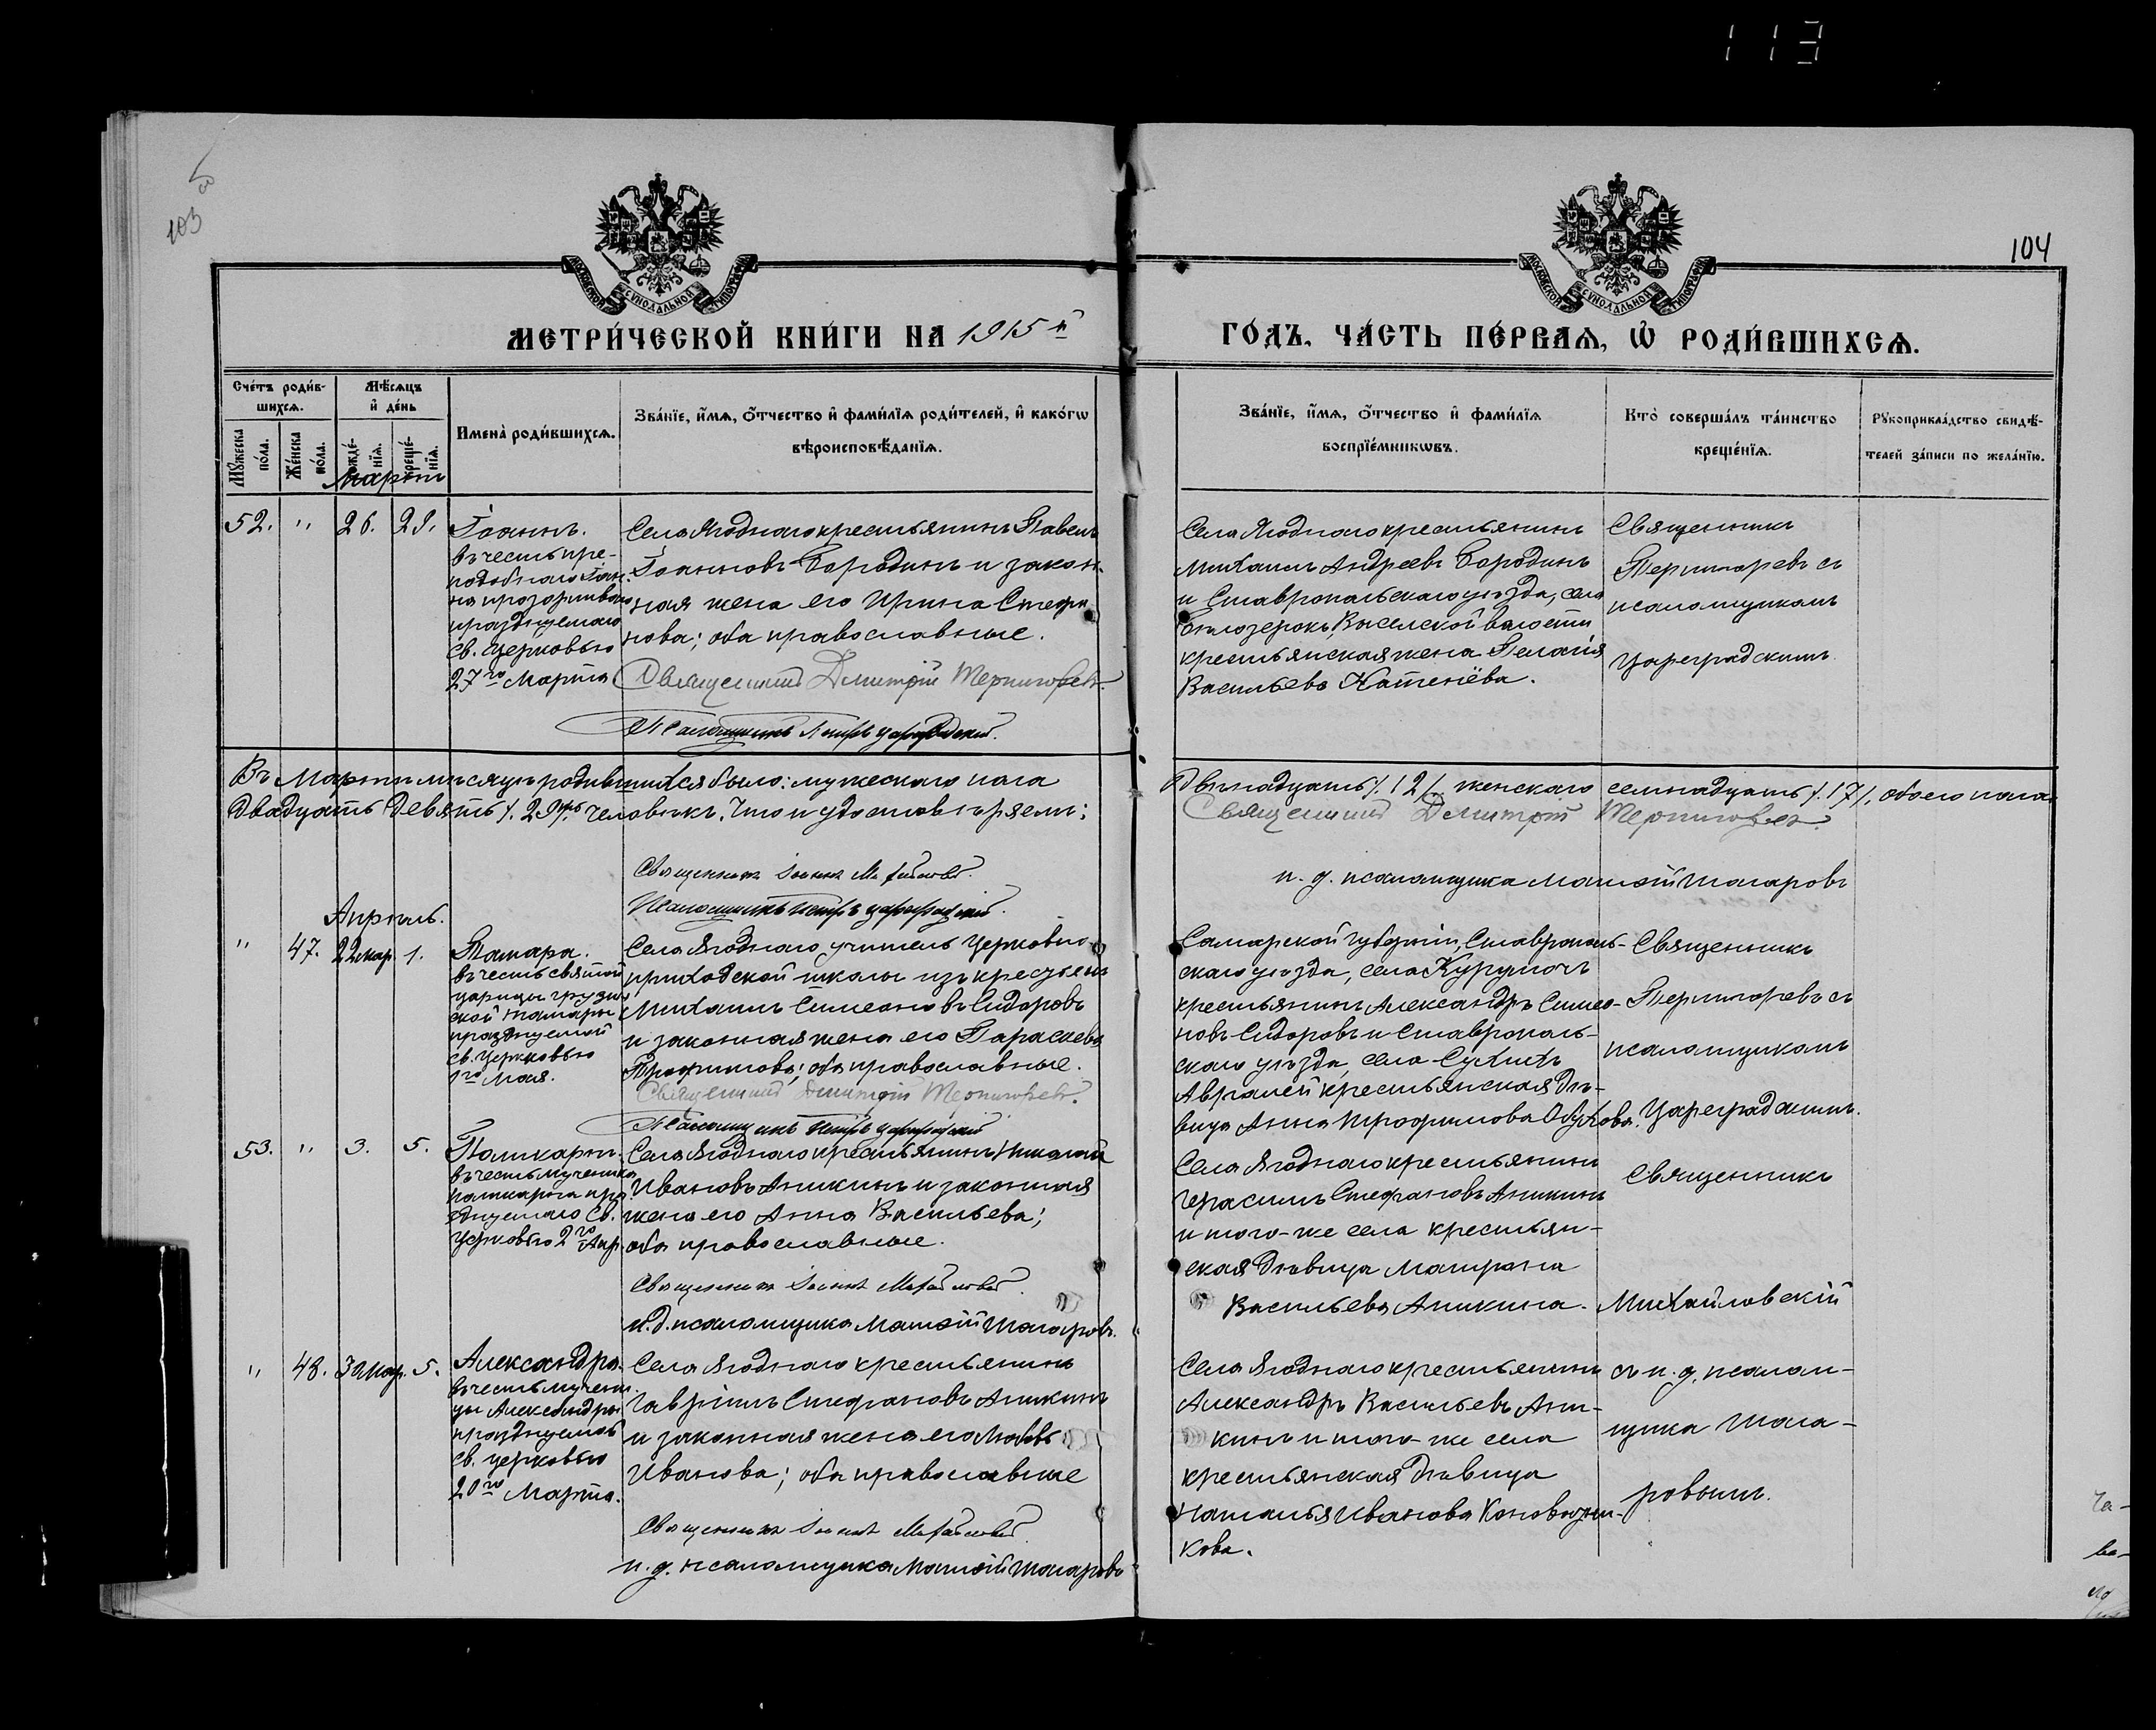 113
103
104
МОСКОВСКОЙ СѴНОДАЛЬНОЙ ТИПОГРАФІИ
МОСКОВСКОЙ СѴНОДАЛЬНОЙ ТИПОГРАФІИ
МЕТРИ́ЧЕСКОЙ КНИ́ГИ НА 1915 й
ГО́ДЪ, ЧА́СТЬ ПЕ́РВАѦ, Ѡ҆ РОДИ́ВШИХСѦ.
Сче́тъ роди́в-
шихсѧ.
Мѣ́сѧцъ
и҆ де́нь
Мꙋ́жеска по́ла.
Же́нска по́ла.
рожде́-
нїѧ.
креще́-
нїѧ.
Имена̀ роди́вшихсѧ.
Зва́нїе, и҆́мѧ, ѻ҆́тчество и҆ фами́лїѧ роди́телей, и҆ како́гѡ
вѣроисповѣ́данїѧ.
Зва́нїе, и҆́мѧ, ѻ҆́тчество и҆ фами́лїѧ
воспрїе́мникѡвъ.
Кто̀ соверша́лъ та́инство
креще́нїѧ.
Рꙋкоприкла́дство свидѣ́-
телей за́писи по жела́нїю.
Мартъ
52. " 26. 29.
Іоаннъ.
въ честь пре-
подобнаго Іоан-
на прозорливаго
празднуемаго
св. церковью
27го Марта
Села Ягоднаго крестьянинъ Павелъ
Іоанновъ Бородинъ и закон-
ная жена его Ирина Стефа
нова; оба православные.
Священникъ Димитрій Терпигоревъ.
Псаломщикъ Петръ Цареградскій.
Села Ягоднаго крестьянинъ
Михаилъ Андреевъ Бородинъ
и Ставропольскаго уѣзда, села
Бѣлозерокъ, Выселской волости
крестьянская жена Пелагія
Васильева Катенёва.
Священникъ
Терпигоревъ съ
псаломщикомъ
Цареградскимъ
Въ Мартѣ мѣсяцѣ родившихся было: мужескаго пола
двѣнадцать /.12/. женскаго семнадцать /.17/. обоего пола
двадцать девять /.29/. человѣкъ. Что и удостовѣряемъ:
Священникъ Димитрій Терпигоревъ.
Священникъ Іоаннъ Михайловскій
Псаломщикъ Петръ Цареградскій.
и. д. псаломщика Матѳій Шагаровъ
Апрѣль.
" 47. 22 мар. 1.
Тамара.
въ честь святой
царицы грузин
ской Тамары
празднуемой
св. церковью
1го Мая.
Села Ягоднаго учитель церковно-
приходской школы изъ крестьянъ
Михаилъ Симеоновъ Сидоровъ
и законная жена его Параскева
Трофимова; оба православные.
Священникъ Димитрій Терпигоревъ.
Псаломщикъ Петръ Цареградскій
Самарской губерніи, Ставрополь-
скаго уѣзда, села Курумочъ
крестьянинъ Александръ Симео-
новъ Сидоровъ и Ставрополь-
скаго уѣзда, села Сухихъ
Авралей крестьянская дѣ-
вица Анна Трофимова Обухова.
Священникъ
Терпигоревъ съ
псаломщикомъ
Цареградскимъ.
53. " 3. 5.
Поликарпъ.
въ честь мученика
Поликарпа пра
зднуемаго св.
церковью 2го Апр.
Села Ягоднаго крестьянинъ Николай
Ивановъ Аникинъ и законная
жена его Анна Васильева;
оба православные.
Священникъ Іоаннъ Михайловскій
и. д. псаломщика Матѳій Шагаровъ.
Села Ягоднаго крестьянинъ
Герасимъ Стефановъ Аникинъ
и того-же села крестьян-
ская дѣвица Матрона
Васильева Аникина.
Священникъ
Михайловскій
" 48. 31 мар. 5.
Александра.
въ честь мучени
цы Александры
празднуемой
св. церковью
20го Марта.
Села Ягоднаго крестьянинъ
Гавріилъ Стефановъ Аникинъ
и законная жена его Любовь
Иванова; оба православные
Священникъ Іоаннъ Михайловскій
и. д. псаломщика Матѳій Шагаровъ
Села Ягоднаго крестьянинъ
Александръ Васильевъ Ани-
кинъ и того-же села
крестьянская дѣвица
Наталья Иванова
кова.
съ и. д. псалом-
щика Шага-
ровымъ.